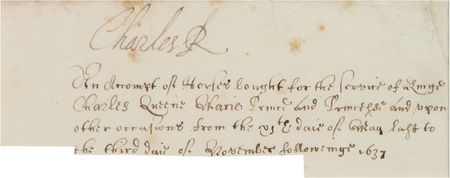 Charles R.
An Accompt of Horses bought for the service of Kinge
Charles Queene Marie Prince and Princesse and upon
other occasions from the xith daie of May last to
the third daie of November followeinge 1637